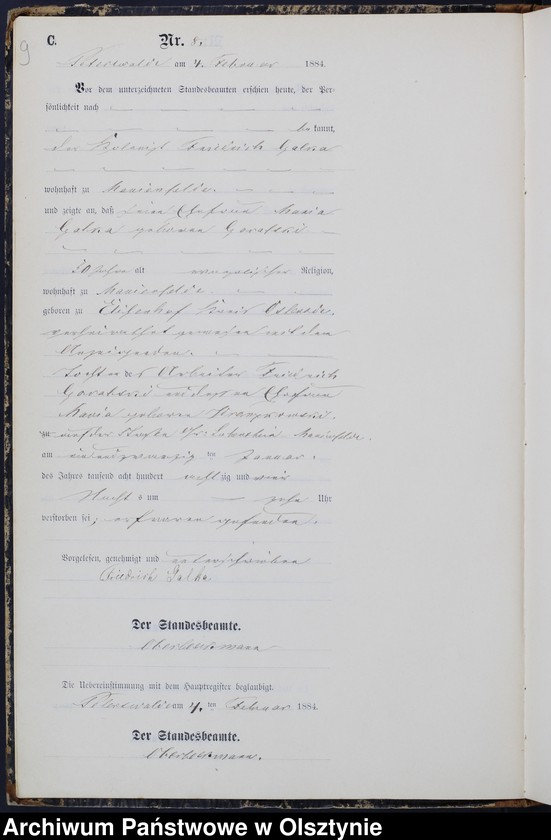 9
C. Nr. 8.
Peterswalde am 4. Februar 1884.
Vor dem unterzeichneten Standesbeamten erschien heute, der Per-
sönlichkeit nach
bekannt,
der Friedrich Galka
wohnhaft zu Marienfelde.
und zeigte an, daß seine Ehefrau Maria
Galka geborene Goralski
50 Jahre alt evangelischer Religion,
wohnhaft zu Marienfelde
geboren zu Kreis Osterode,
verheirathet gewesen mit dem
Anzeigenden.
Tochter des Arbeiter Friedrich
Goralski und dessen Ehefrau
Maria geborene
zu auf der Marienfelde.
am ein und zwanzig ten Januar
des Jahres tausend acht hundert achtzig und vier
Nachts um zehn Uhr
verstorben sei; erfroren gefunden.
Vorgelesen, genehmigt und unterschrieben
Friedrich Galka
Der Standesbeamte.
Die Uebereinstimmung mit dem Hauptregister beglaubigt.
Peterswalde am 4. ten Februar 1884.
Der Standesbeamte.
Archiwum Państwowe w Olsztynie